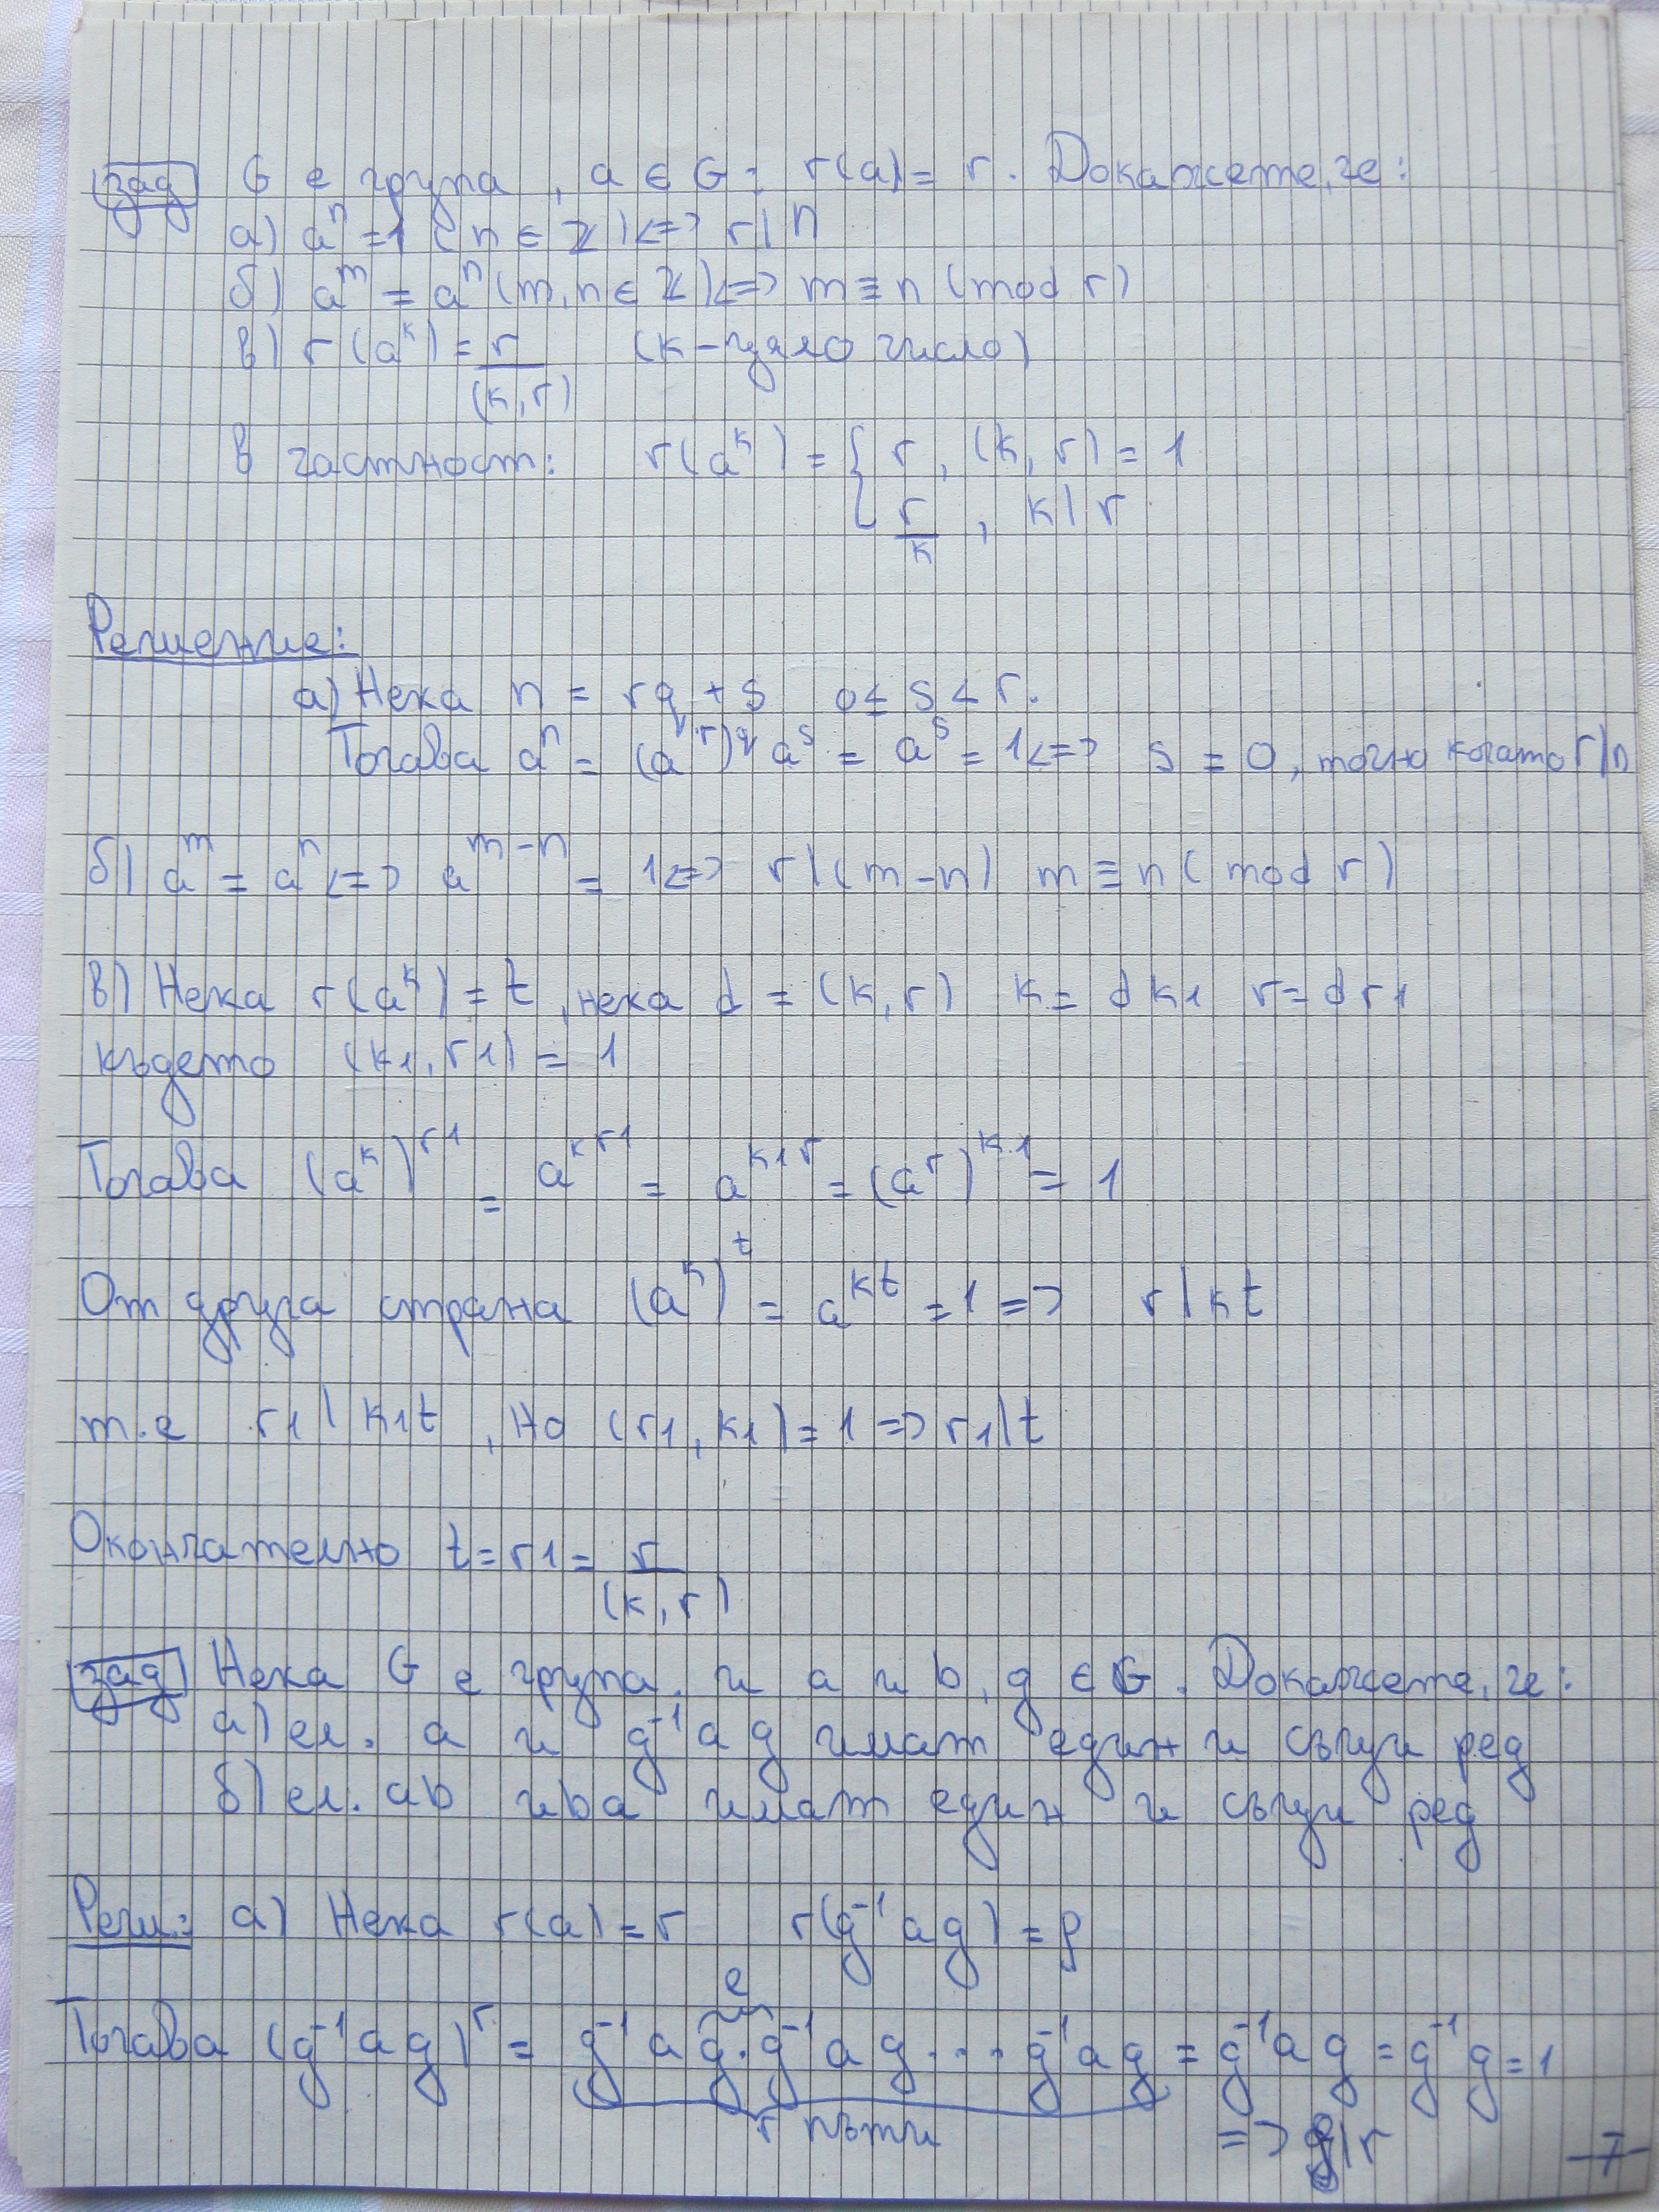 зад G е група, a ∈ G : r(a) = r. Докажете, че:
а) aⁿ = 1 (n ∈ ℤ) <=> r | n
б) aᵐ = aⁿ (m, n ∈ ℤ) <=> m ≡ n (mod r)
в) r(aᵏ) = r/(k, r) (k – цяло число)
в частност: r(aᵏ) = { r, (k, r) = 1
r/k, k | r
Решение:
а) Нека n = rq + s 0 ≤ s < r.
Тогава aⁿ = (aʳ)^q aˢ = aˢ = 1 <=> s = 0, точно когато r | n
б) aᵐ = aⁿ <=> a^(m-n) = 1 <=> r | (m - n) m ≡ n (mod r)
в) Нека r(aᵏ) = t, нека d = (k, r) k = dk₁ r = dr₁
където (k₁, r₁) = 1
Тогава (aᵏ)^r₁ = a^kr₁ = a^k₁r = (aʳ)^k₁ = 1
От друга страна (aᵏ)ᵗ = a^kt = 1 => r | kt
т.е r₁ | k₁t, но (r₁, k₁) = 1 => r₁ | t
Окончателно t = r₁ = r/(k, r)
зад Нека G е група. и a и b, g ∈ G. Докажете, че:
а) ел. a и g⁻¹ag имат един и същи ред
б) ел. ab и ba имат един и същи ред
Реш: а) Нека r(a) = r r(g⁻¹ag) = ρ
e
Тогава (g⁻¹ag)ʳ = g⁻¹ag.g⁻¹ag...g⁻¹ag = g⁻¹ag = g⁻¹g = 1
r пъти
=> ρ | r
-7-